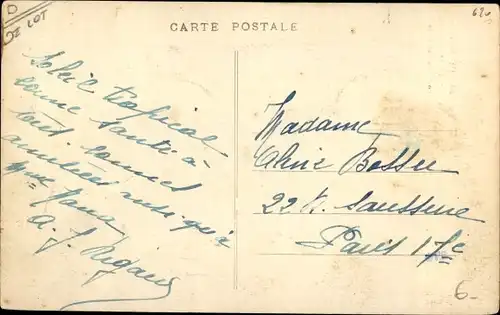 D
LOT
CARTE POSTALE
626
Soleil tropical
bonne santé à
tous bonnes
amitiés ainsi qu'à
Mme
A. J. Rigaud
Madame
Aline Bossu
22 R. Saussure
Paris 17e
6-